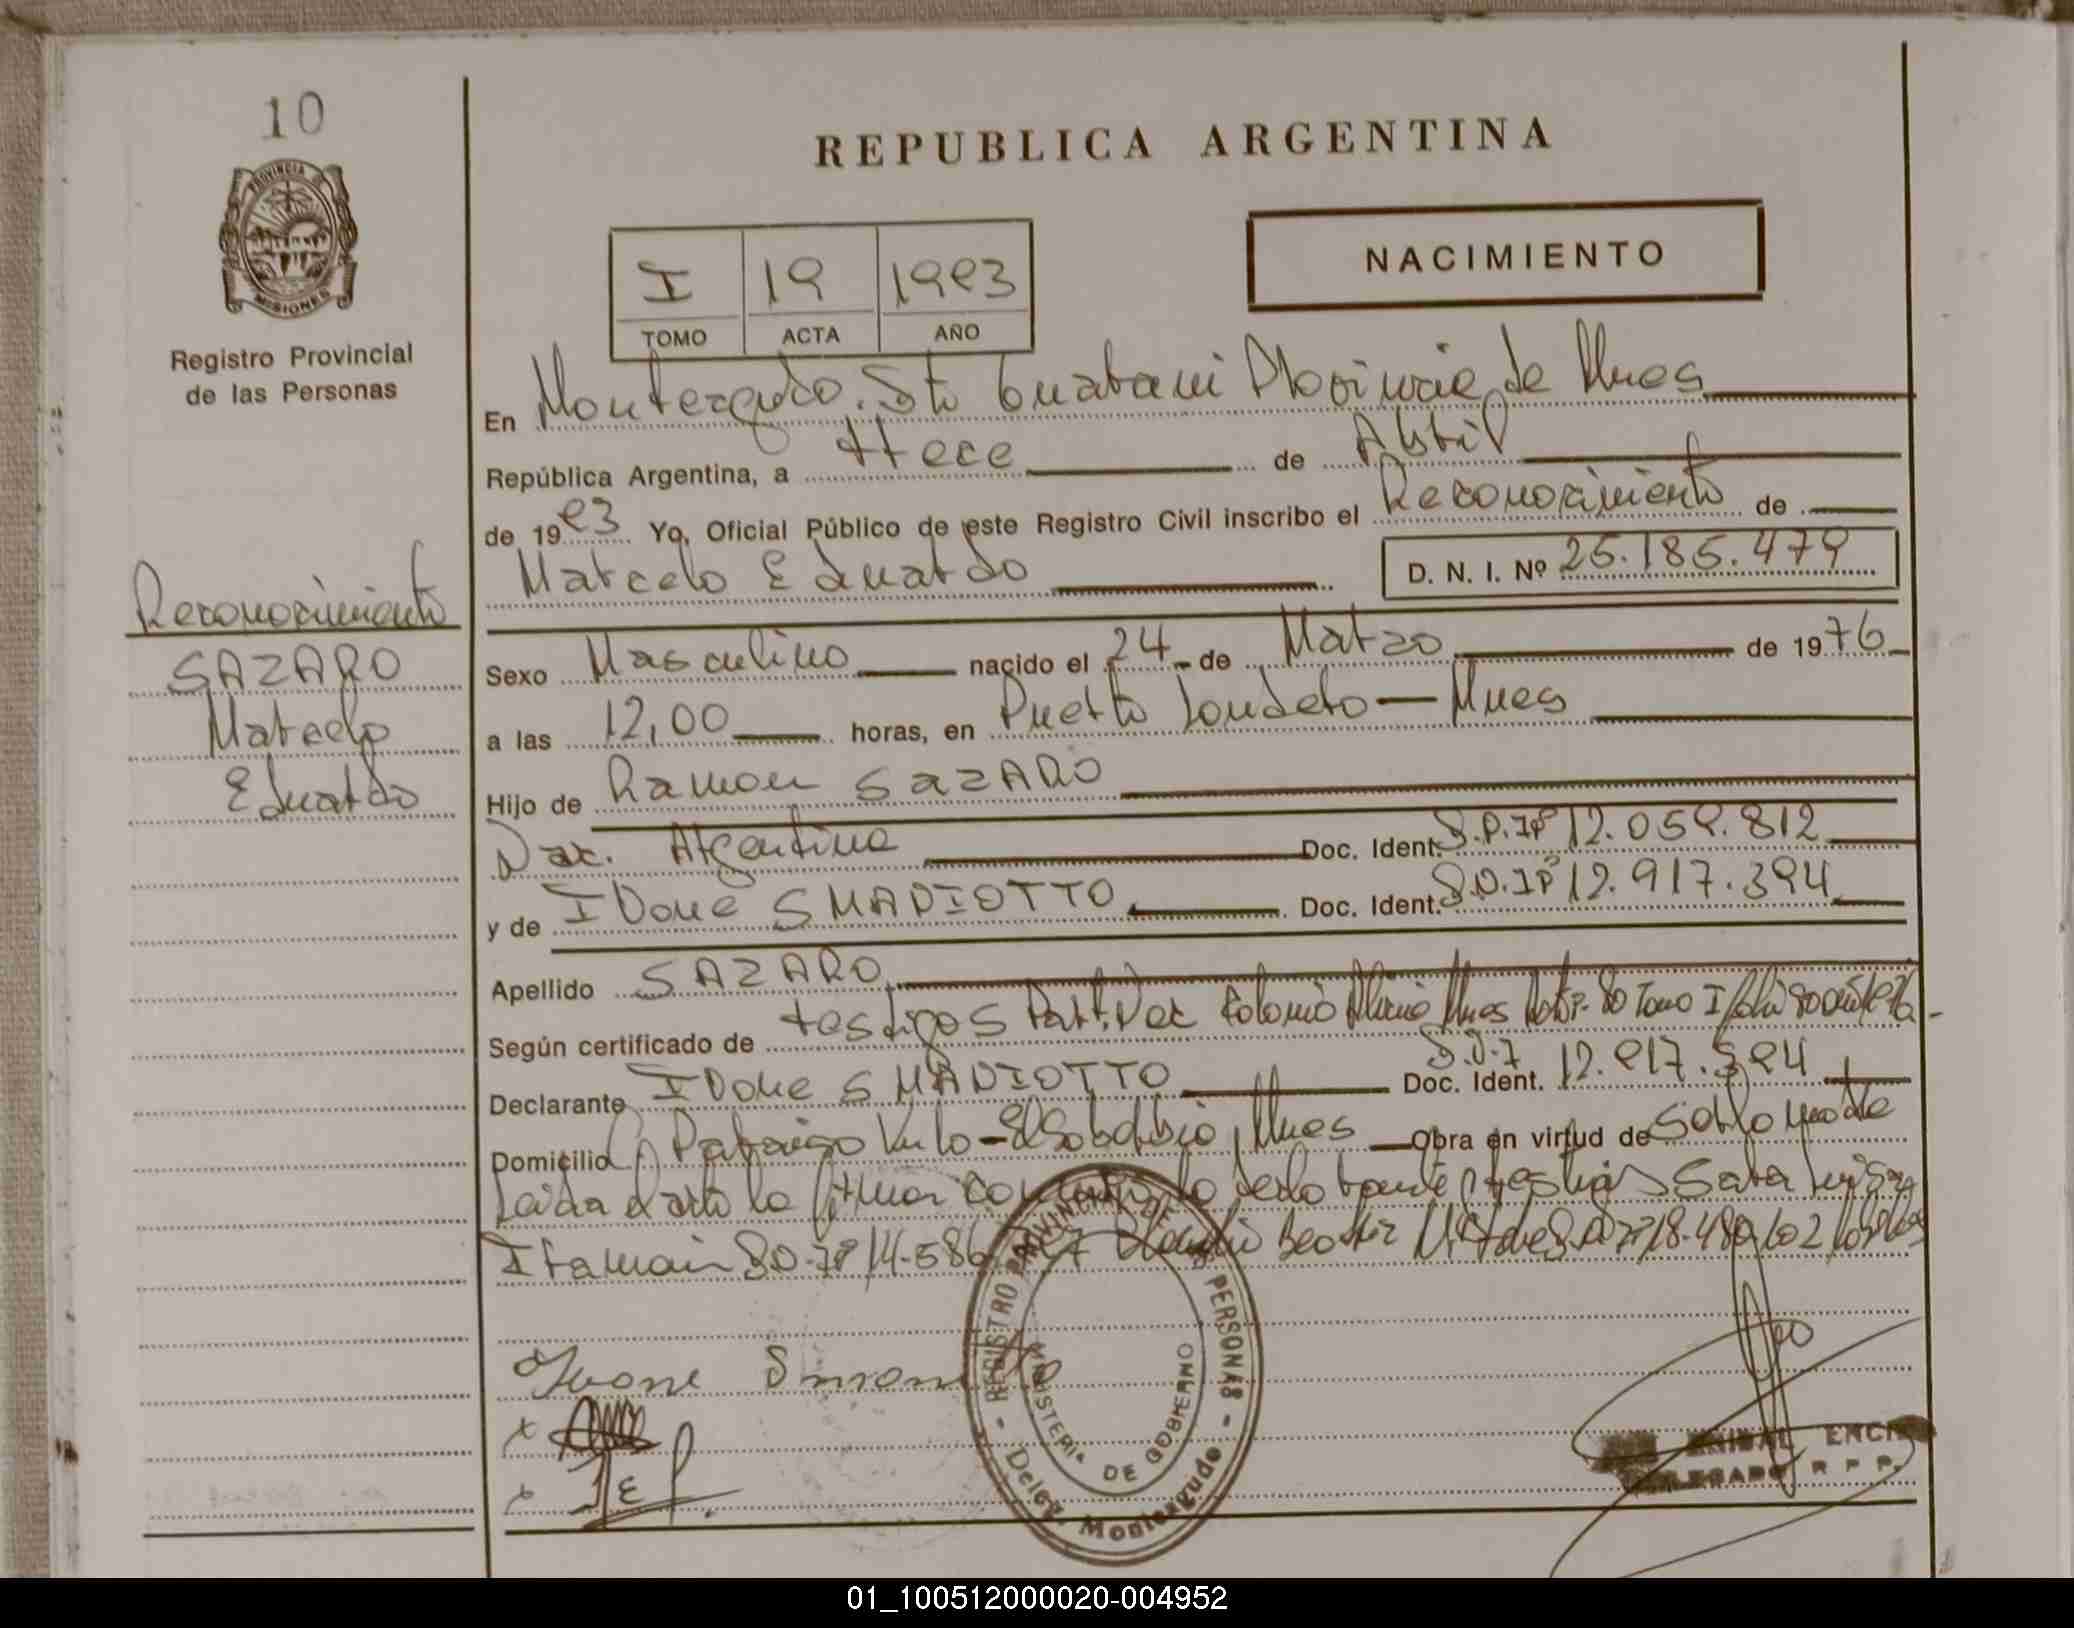 10
REPUBLICA ARGENTINA
PROVINCIA D
MISIONES
Registro Provincial
de las Personas
NACIMIENTO
I 19 1983
TOMO ACTA AÑO
En Monteagudo. Dto Guarani Provincia de Mnes
República Argentina, a trece de Abril
de 1983 Yo, Oficial Público de este Registro Civil inscribo el Reconocimiento de
Marcelo Eduardo D. N. I. Nº 25.185.479
Reconocimiento
SAZARO
Marcelo
Eduardo
Sexo Masculino nacido el 24 de Marzo de 1976
a las 12,00 horas, en Puerto Londero - Mnes
Hijo de Ramon SAZARO
Nac. Argentina Doc. Ident. D.N.Iº 12.059.812
y de IVone SMANIOTTO Doc. Ident. D.N.Iº 12.917.394
Apellido SAZARO
Según certificado de testigos Part. Nac Colonia Alicia Mnes Tomo I
Declarante IVone SMANIOTTO Doc. Ident. D.N.I 12.917.394
Domicilio Paraiso Km 10 - El Soberbio, Mnes Obra en virtud de
Leida el acta la firman conmigo la declarante testigos Sara
Itamain
Ivone Sman
REGISTRO PROVINCIAL DE PERSONAS
MINISTERIO DE GOBIERNO
Deleg. Monteagudo
ANIBAL ENCI
DELEGADO R P P.
01_100512000020-004952